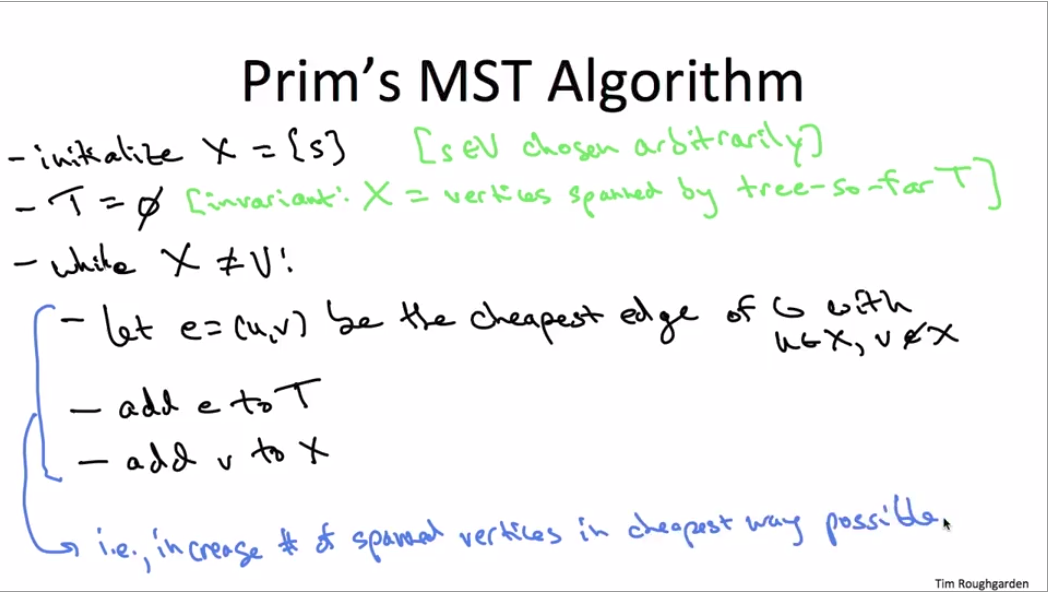 Prim's MST Algorithm
- initialize X = {s} [s∈V chosen arbitrarily]
- T = ∅ [invariant: X = vertices spanned by tree-so-far T]
- while X ≠ V:
- let e = (u,v) be the cheapest edge of G with
u∈X, v∉X
- add e to T
- add v to X
i.e., increase # of spanned vertices in cheapest way possible.
Tim Roughgarden